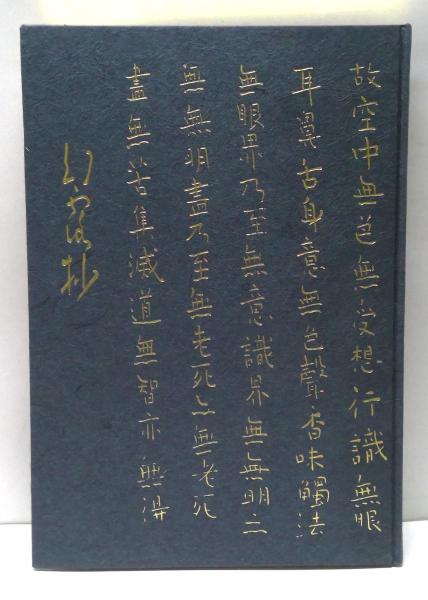 故空中無色無受想行識無眼
耳鼻舌身意無色聲香味觸法
無眼界乃至無意識界無無明亦
無無明盡乃至無老死亦無老死
盡無苦集滅道無智亦無得